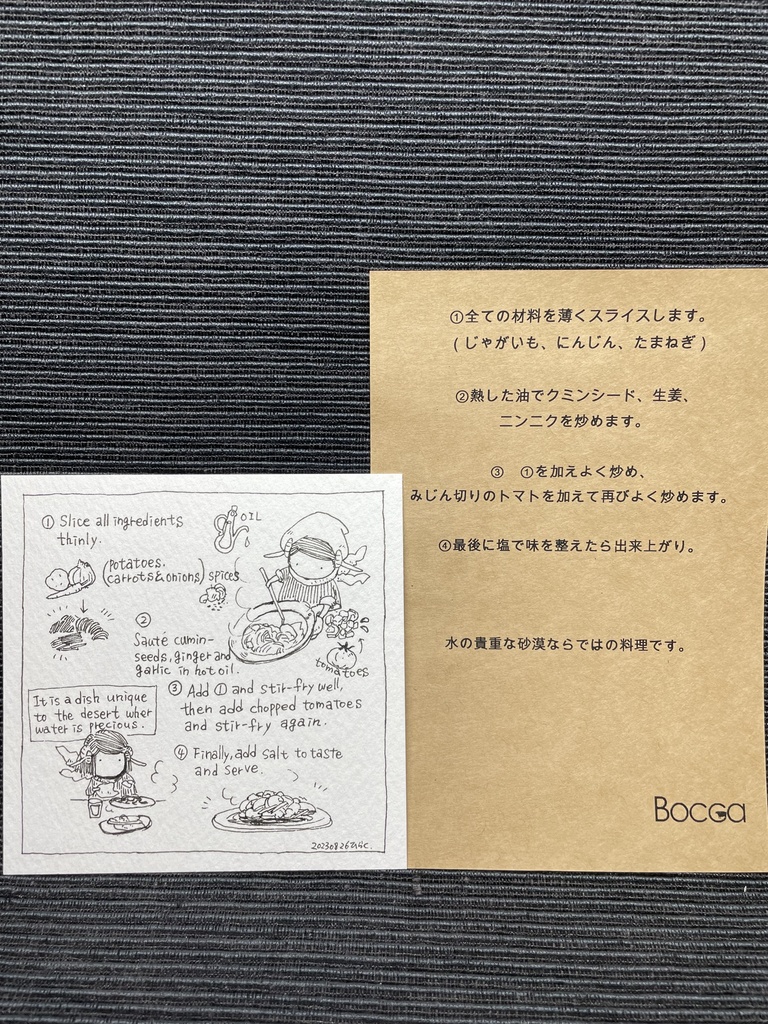 ①全ての材料を薄くスライスします。
(じゃがいも、にんじん、たまねぎ)
②熱した油でクミンシード、生姜、
ニンニクを炒めます。
③ ①を加えよく炒め、
みじん切りのトマトを加えて再びよく炒めます。
④最後に塩で味を整えたら出来上がり。
水の貴重な砂漠ならではの料理です。
BOCGa
① Slice all ingredients
thinly.
OIL
(Potatoes,
carrots&onions)
spices
②
Sauté cumin-
seeds, ginger and
garlic in hot oil.
tomatoes
③ Add ① and stir-fry well,
then add chopped tomatoes
and stir-fry again.
It is a dish unique
to the desert wher
water is precious.
④ Finally, add salt to taste
and serve.
20230826